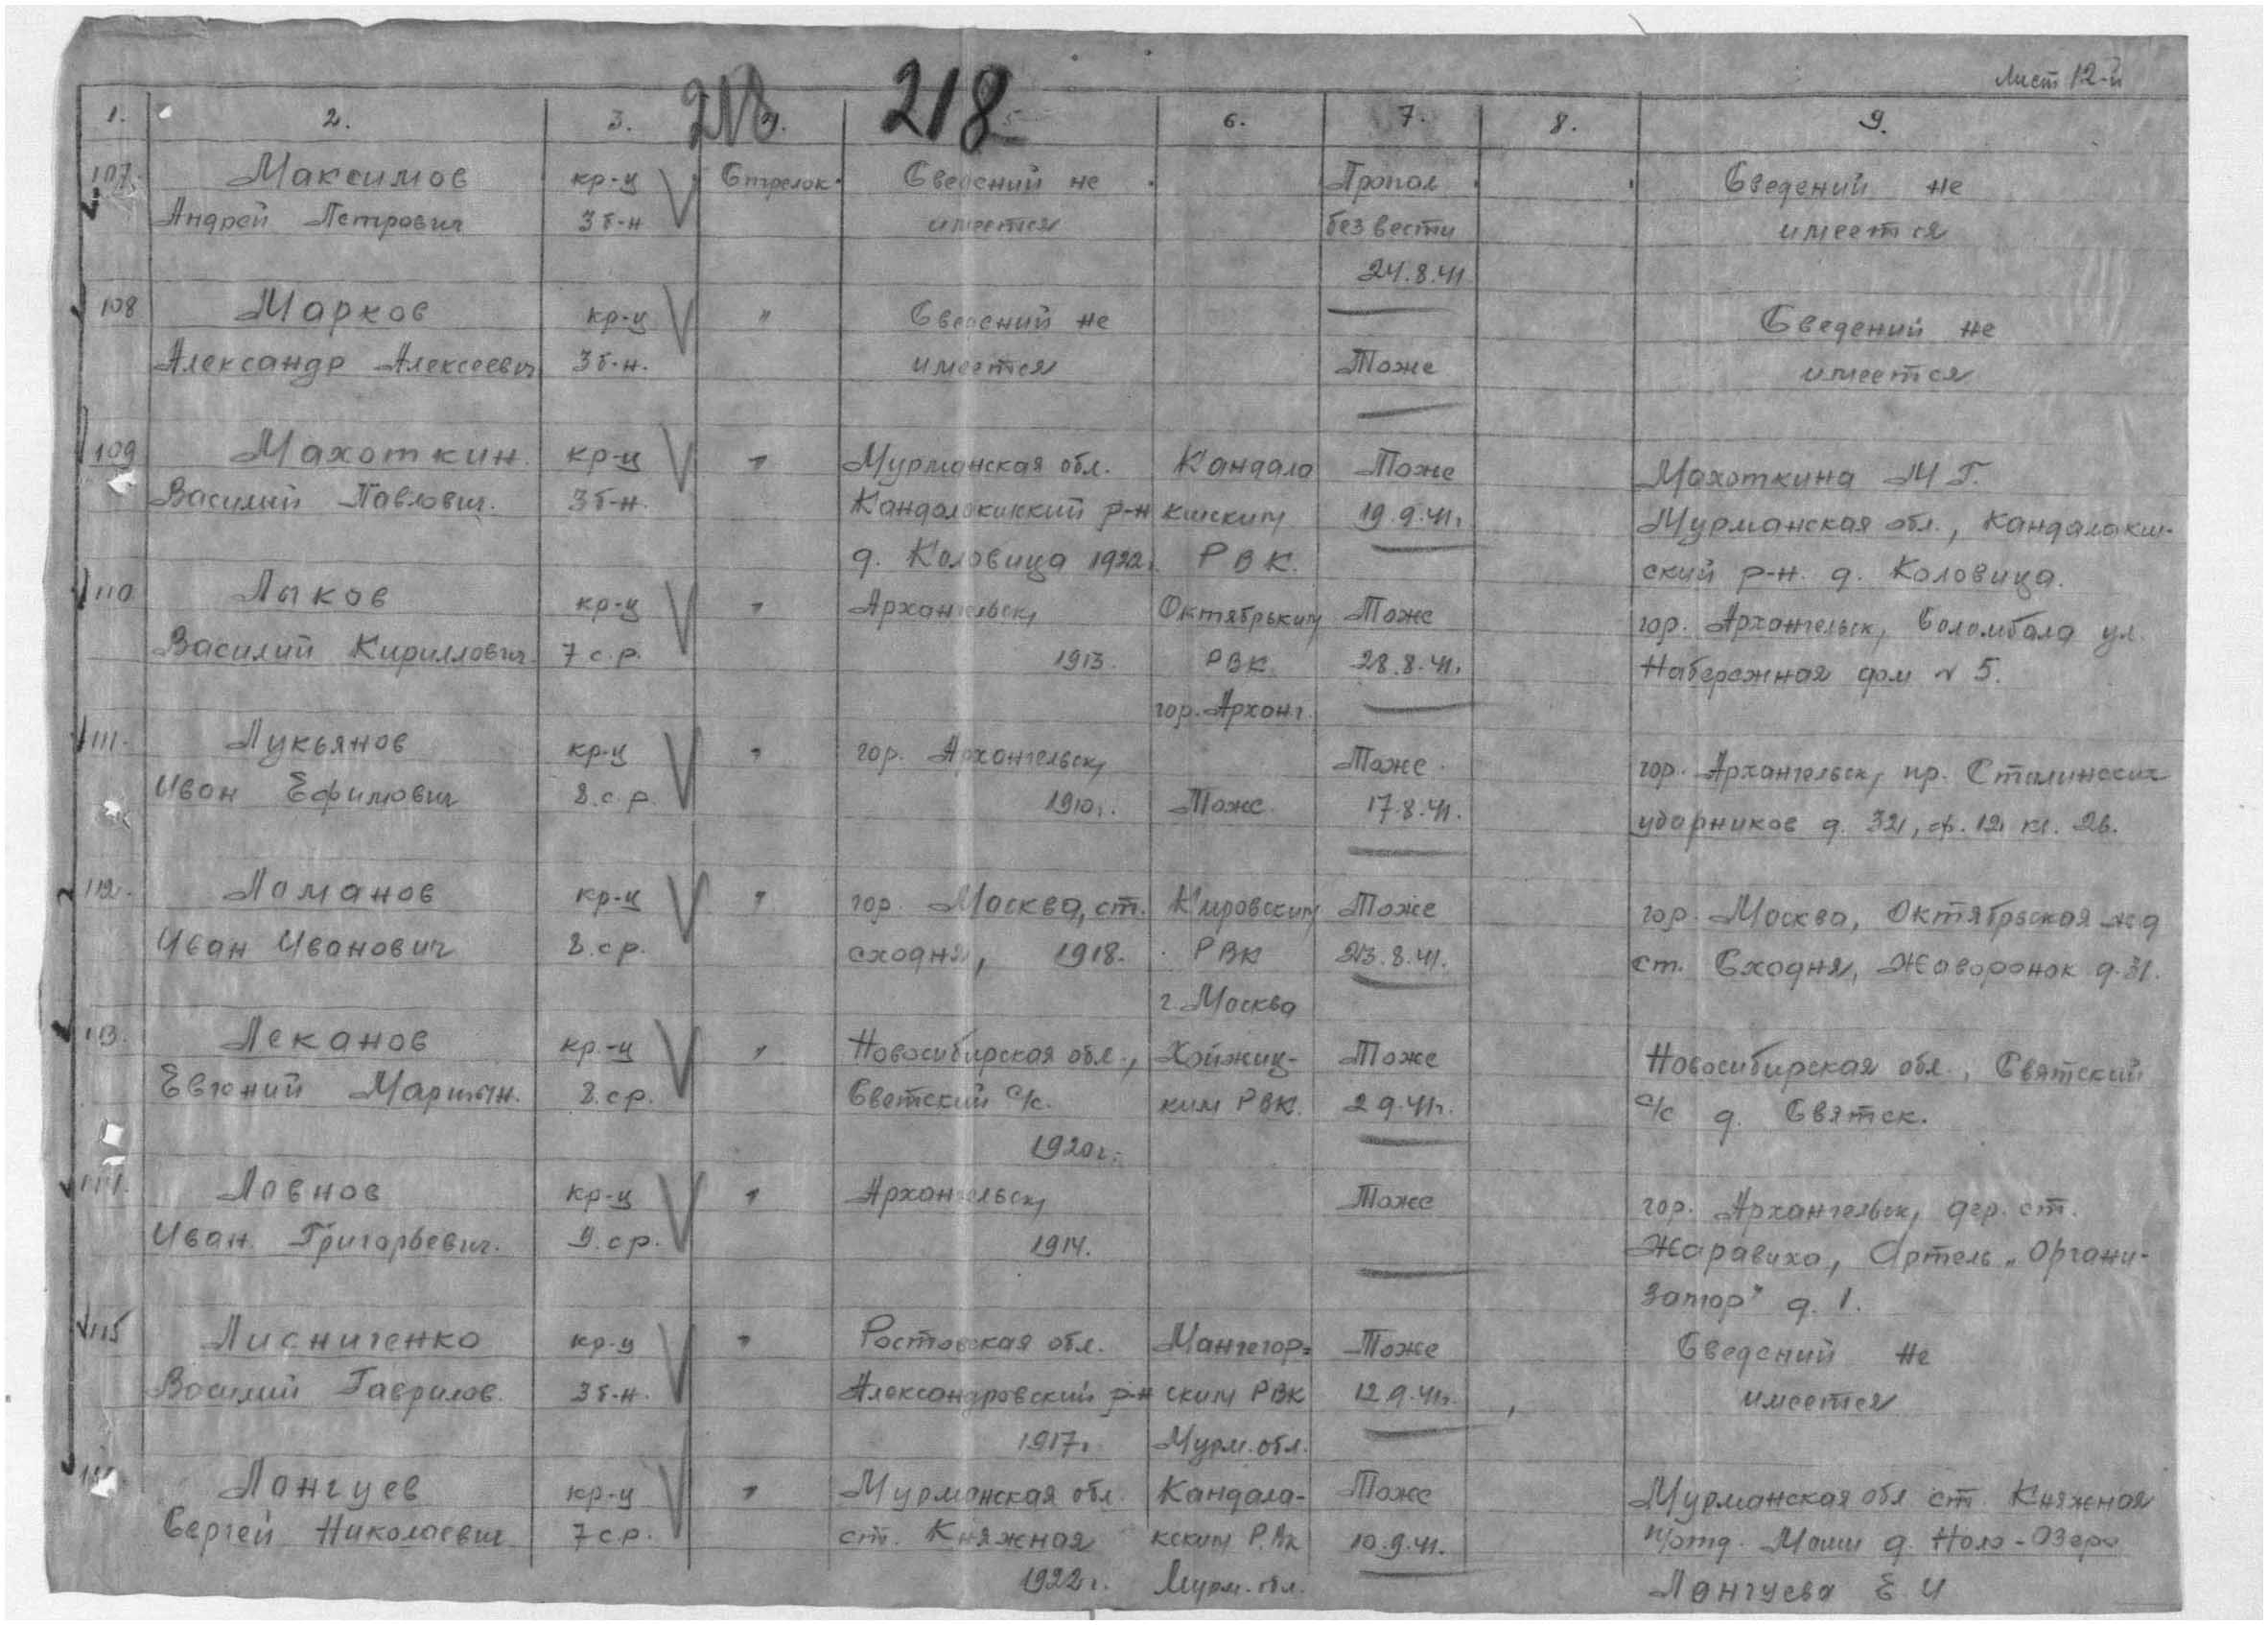 Лист 12-й
218 218
1. 2. 3. 4. 5 6. 7. 8. 9.
107. Максимов кр-ц Стрелок Сведений не Пропал Сведений не
Андрей Петрович 3 б-н имеется без вести имеется
24.8.41
108 Марков кр-ц " Сведений не Сведений не
Александр Алексеевич 3 б-н. имеется Тоже имеется
109 Махоткин кр-ц " Мурманская обл. Кандала Тоже Махоткина М Г.
Василий Павлович. 3 б-н. Кандалакшский р-н кшским 19.9.41. Мурманская обл., Кандалакш-
д. Коловица 1922. РВК. ский р-н. д. Коловица.
110 Лыков кр-ц " Архангельск, Октябрьким Тоже гор. Архангельск, Соломбала ул.
Василий Кириллович. 7 с.р. 1913. РВК 28.8.41. Набережная дом № 5.
гор. Арханг.
111. Лукьянов кр-ц " гор. Архангельск, Тоже. гор. Архангельск, пр. Сталинских
Иван Ефимович 8.с.р. 1910г. Тоже. 17.8.41. ударников д. 32, ф. 12 кв. 26.
112. Ломанов кр-ц " гор. Москва, ст. Кировским Тоже гор. Москва, Октябрьская ж д
Иван Иванович 8.с р. сходня, 1918. РВК 23.8.41. ст. Сходня, Жаворонок д. 31.
г. Москва
113. Леканов кр-ц " Новосибирская обл., Тоже Новосибирская обл., Святский
Евгений Мартын. 8.с р. Светский с/с. ким РВК. 2 9.41г. с/с д. Святск.
1920г.
114. Лавнов кр-ц " Архангельск, Тоже гор. Архангельск, дер. ст.
Иван Григорьевич. 9.с р. 1914. Жаравиха, Артель „Органи-
затор" д. 1.
115 Лисниченко кр-ц " Ростовская обл. Мончегор= Тоже Сведений не
Василий Гаврилов. 3 б-н. Александровский р-н ским РВК 12 9.41г. имеется
1917г. Мурм. обл.
116. Лангуев кр-ц " Мурманская обл. Кандала- Тоже Мурманская обл ст. Княжная
Сергей Николаевич 7 с.р. ст. Княжная кским 10.9.41. д. Ноло-Озеро
1922г. Мурм. обл. Лангуева Е И